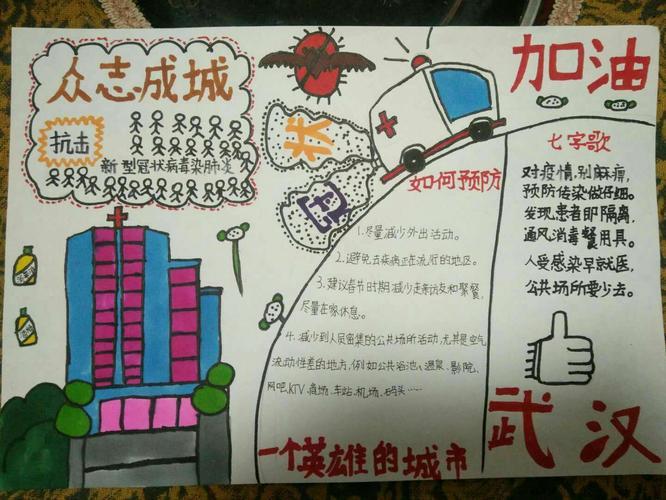 众志成城
抗击
新型冠状病毒染肺炎
状
冠
加油
七字歌
对疫情,别麻痹,
预防传染做仔细。
发现患者即隔离,
通风消毒餐用具。
人受感染早就医,
公共场所要少去。
如何预防
1.尽量减少外出活动。
2.避免去疾病正在流行的地区。
3.建议春节时期减少走亲访友和聚餐,
尽量在家休息。
4.减少到人员密集的公共场所活动,尤其是空气
流动性差的地方,例如公共浴池、温泉、影院、
网吧、KTV、商场、车站、机场、码头……
一个英雄的城市
武汉